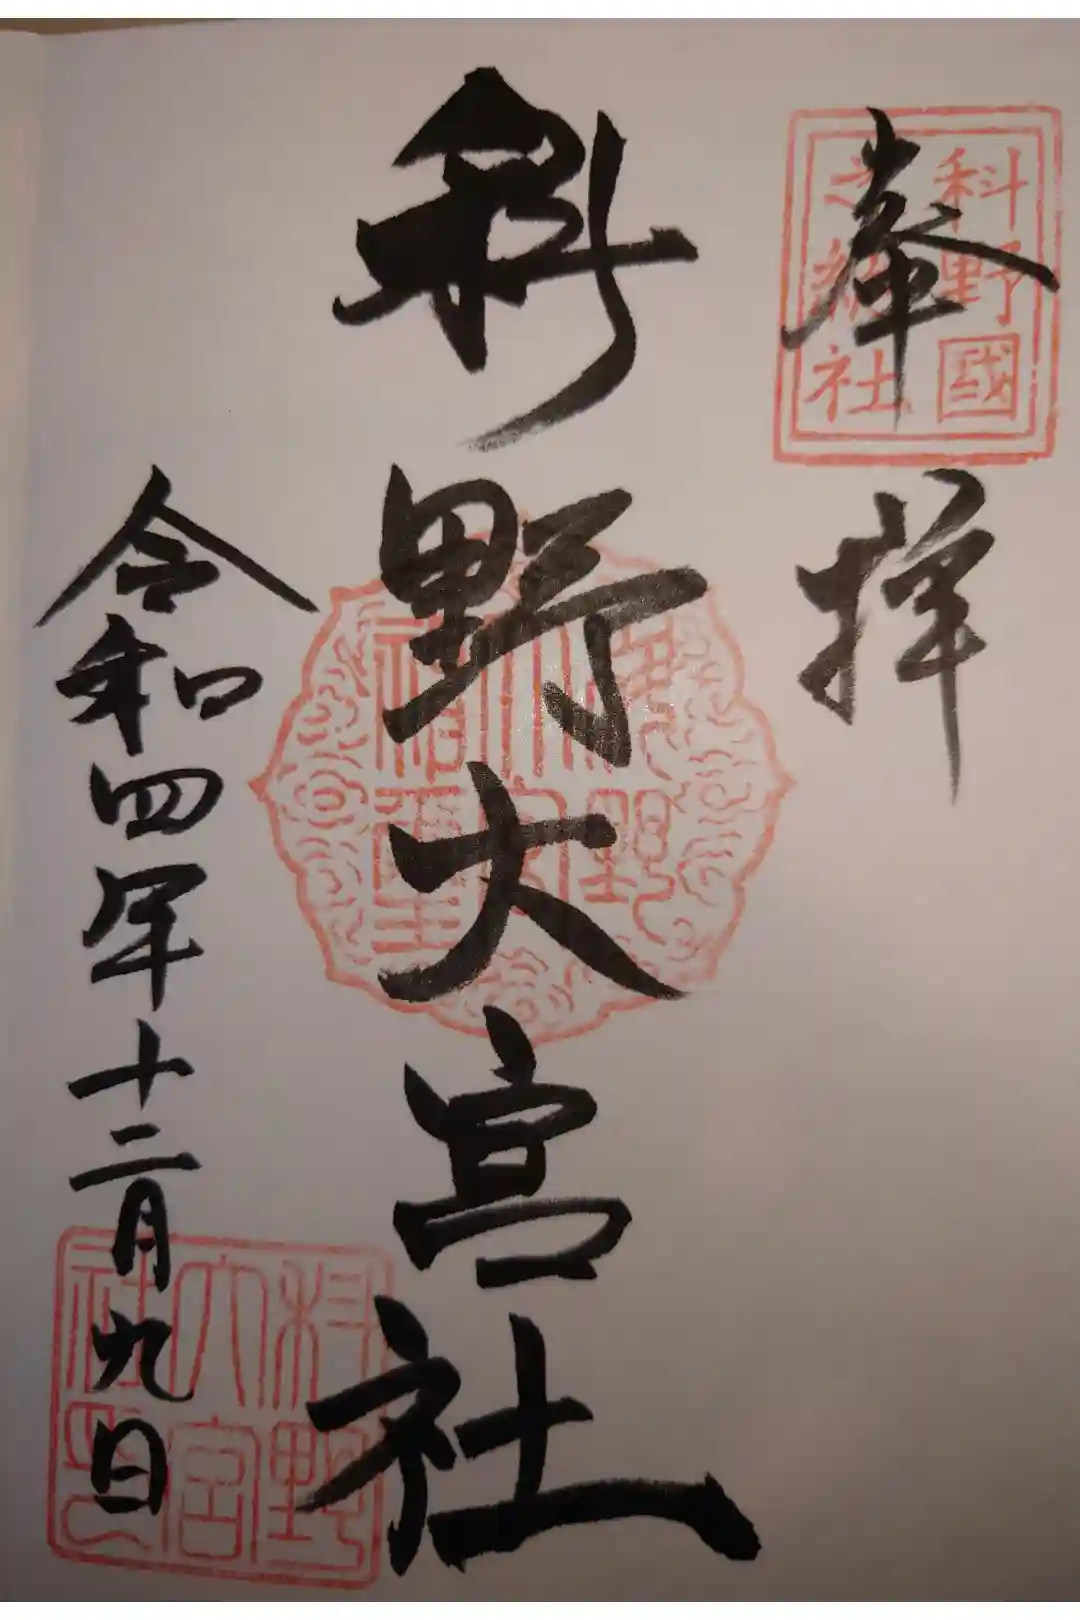 奉拝
科野國
之総社
科野大宮社
科野
大宮
社印
令和四年十二月九日